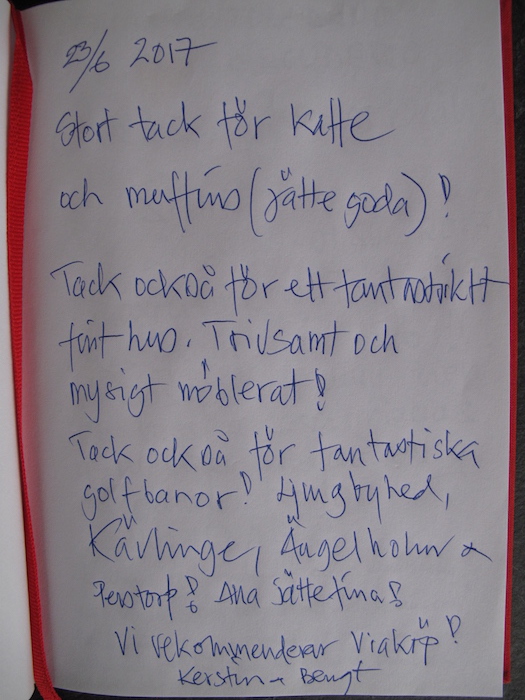 23/6 2017
Stort tack för kaffe
och muffins (jätte goda)!
Tack också för ett fantastiskt
fint hus. Trivsamt och
mysigt möblerat!
Tack också för fantastiska
golfbanor! Ljungbyhed,
Kävlinge, Ängelholm &
Perstorp! Alla jättefina!
Vi rekommenderar Viaköp!
Kerstin & Bengt